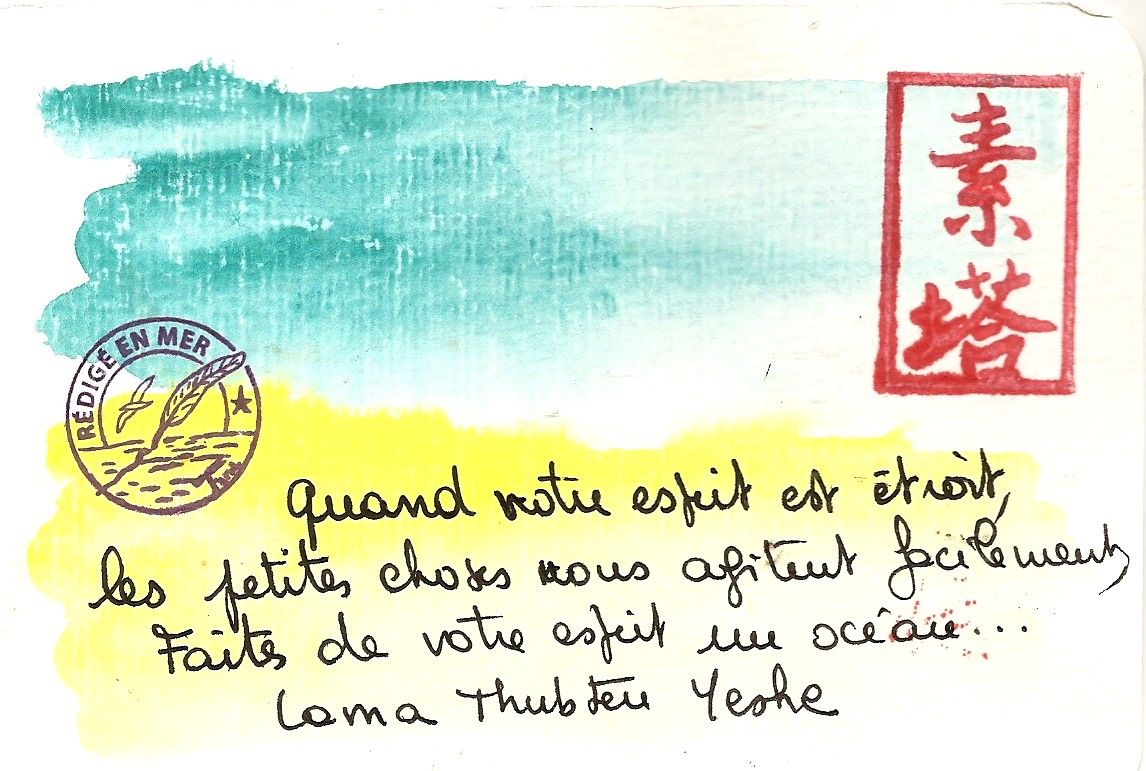 素
塔
RÉDIGÉ EN MER
Quand notre esprit est étroit,
les petites choses nous agitent facilement,
Faites de votre esprit un océan...
Lama Thubten Yeshe